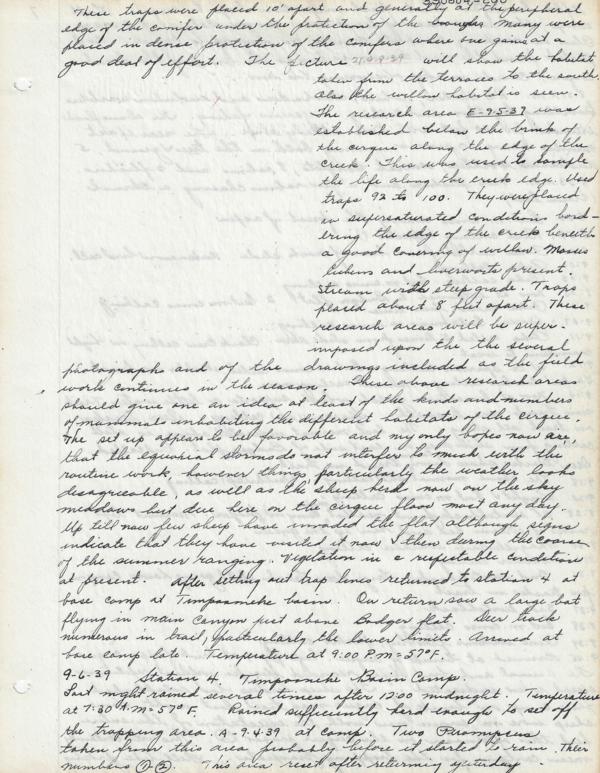 These traps were placed 10' apart and generally at the peripheral
edge of the conifer under the protection of the boughs. Many were
placed in dense protection of the conifers where one gains at a
good deal of effort. The picture 9-39 will show the habitat
taken from the terraces to the south.
Also the willow habitat is seen.
The research area E-9-5-39 was
established below the brink of
the cirque along the edge of the
creek. This was used to sample
the life along the creek edge. Used
traps 92 to 100. They were placed
in supersaturated conditions bord-
ering the edge of the creek beneath
a good covering of willow. Mosses
lichens and liverworts present.
Stream with steep grade. Traps
placed about 8 feet apart. These
research areas will be super-
imposed upon the the several
photographs and of the drawings included as the field
work continues in the season. These above research areas
should give one an idea at least of the kinds and numbers
of mammals inhabiting the different habitats of the cirque.
The set up appears to be favorable and my only hopes now are,
that the equinxial storms do not interfer to much with the
routine work, however things particularly the weather looks
desagreeable, as well as the sheep herd now on the sky
meadows but due here on the cirque floor most any day.
Up till now few sheep have invaded the flat although signs
indicate that they have visited it now & then during the course
of the summer ranging. Vegetation in a respectable condition
at present. After setting out trap lines returned to station 4 at
base camp at Timpooneke basin. On return saw a large bat
flying in main canyon just above Badger flat. Deer track
numerous in trail, particularly the lower limits. Arrived at
base camp late. Temperature at 9:00 P.M = 57°F.
9-6-39 Station 4. Timpooneke Basin Camp.
Last night rained several times after 12:00 midnight. Temperature
at 7:30 A.M = 57° F. Rained sufficiently hard enough to set off
the trapping area A-9-4-39 at camp. Two Peromyscus
taken from this area probably before it started to rain. Their
numbers ① ②. This area reset after returning yesterday